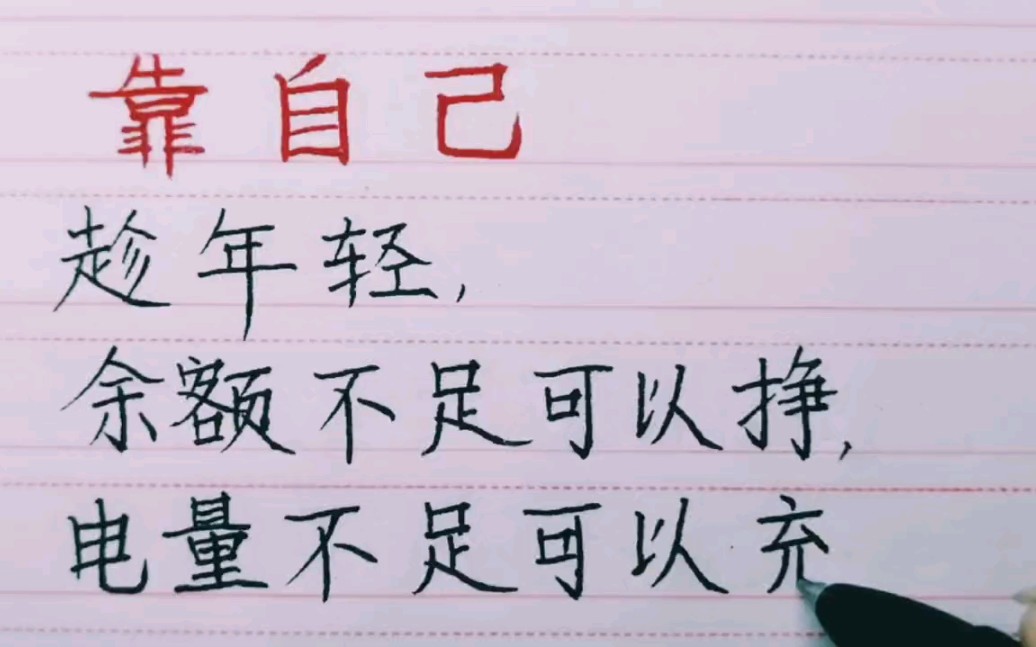 靠自己
趁年轻,
余额不足可以挣,
电量不足可以充